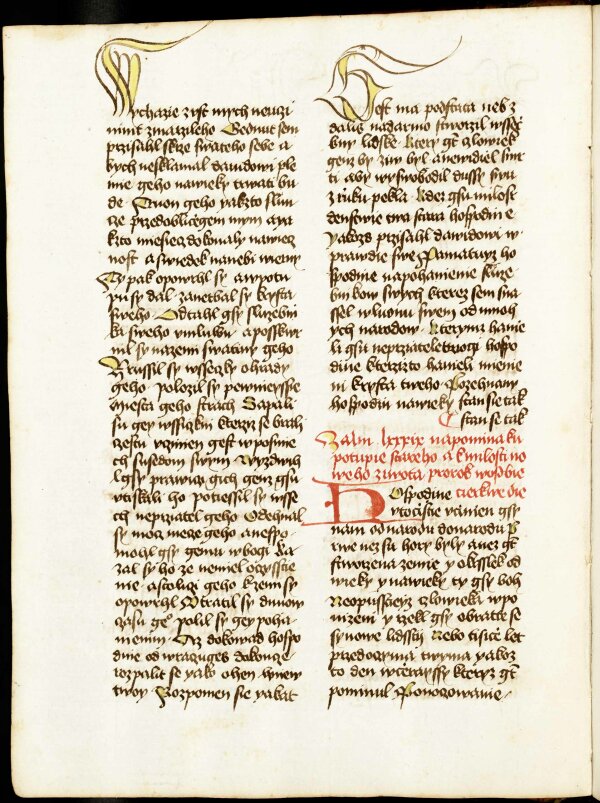 Wychazie z rst mych neuzi
nim zmarzileho Gednut sem
przisahl skrze swateho sebe a
bych nesklamal dawidowi ple
mie geho nawieky trwati bu
de Trvon geho yakzto slun
cze przedoblicegem mym a ya
kzto miesiecz dokonaly nawiecz
nost a swiedek nanebi wierny
Ty pak opowrhl sy a wpotu
pu sy dal zanetbal sy krysta
sweho Odtahl gsy sluzebni
ka sweho vmluwu aposskwr
nil sy nazemi swatiny geho
Zrussil sy wsseczky ohrady
geho polozil sy pewniessie
miesta geho strach Zapali
su gey wssiczkni kterzy se brali
czestu vczinien gest w posmie
ch susedom swym Wyzdwih
l gsy prawiczi gich genz gsu
vtiskali ho potiessil sy wsse
ch neprzatel geho Odehnal
sy mocz mecze geho a nespo
mohl gsy gemu w bogi Ka
zal sy ho ze nemel oczysstie
nie a stoliczi geho k zemi sy
opowrhl Vtratil sy dnuow
czasu geho polil sy gey poha
nienim Az dokowad hospo
dine odwraczuges dokoncze
rozpalit se yako ohen hniew
twoy Rozpomen sie yakat
Gest ma podstata neb z
dalis nadarmo stworzil wsseczky
syny lidske Ktery gt czlowiek
genz by ziw byl a newidiel smr
ti aby wyswobodil dussy swu
z ruku pekla Kdez gsu milosr
denstwie twa stara hospodine
yakozs przisahl dawidowi w
prawdie swe Pamatuyz ho
spodine napohanienie sluze
bnikow swych kterez sem sna
ssel wluonu swem od mnoh
ych narodow Kterymz hanie
li gsu neprzatele twogi hospo
dine kterzizto hanieli miene
ni krysta tweho Pozehnany
hospodin nawieky stan sie tak
stan se tak
Zalm lxxxix napomina ku
potupie stareho a k milosti no
weho ziwota prorok wosobie
Hospodine cierkwe die
vtocisstie vczinien gsy
nam od narodu do narodu P
rwe nez su hory byly anez gt
stworzena zemie y okrsslek od
wieky y nawieky ty gsy boh
Neopusstieyz czlowieka w po
nizeni y rzekl gsy obratte se
synowe lidsstij Nebo tisicz let
przedoczyma twyma yakoz
to den wczeraysi kteryz gt
pominul Ponorzowanie